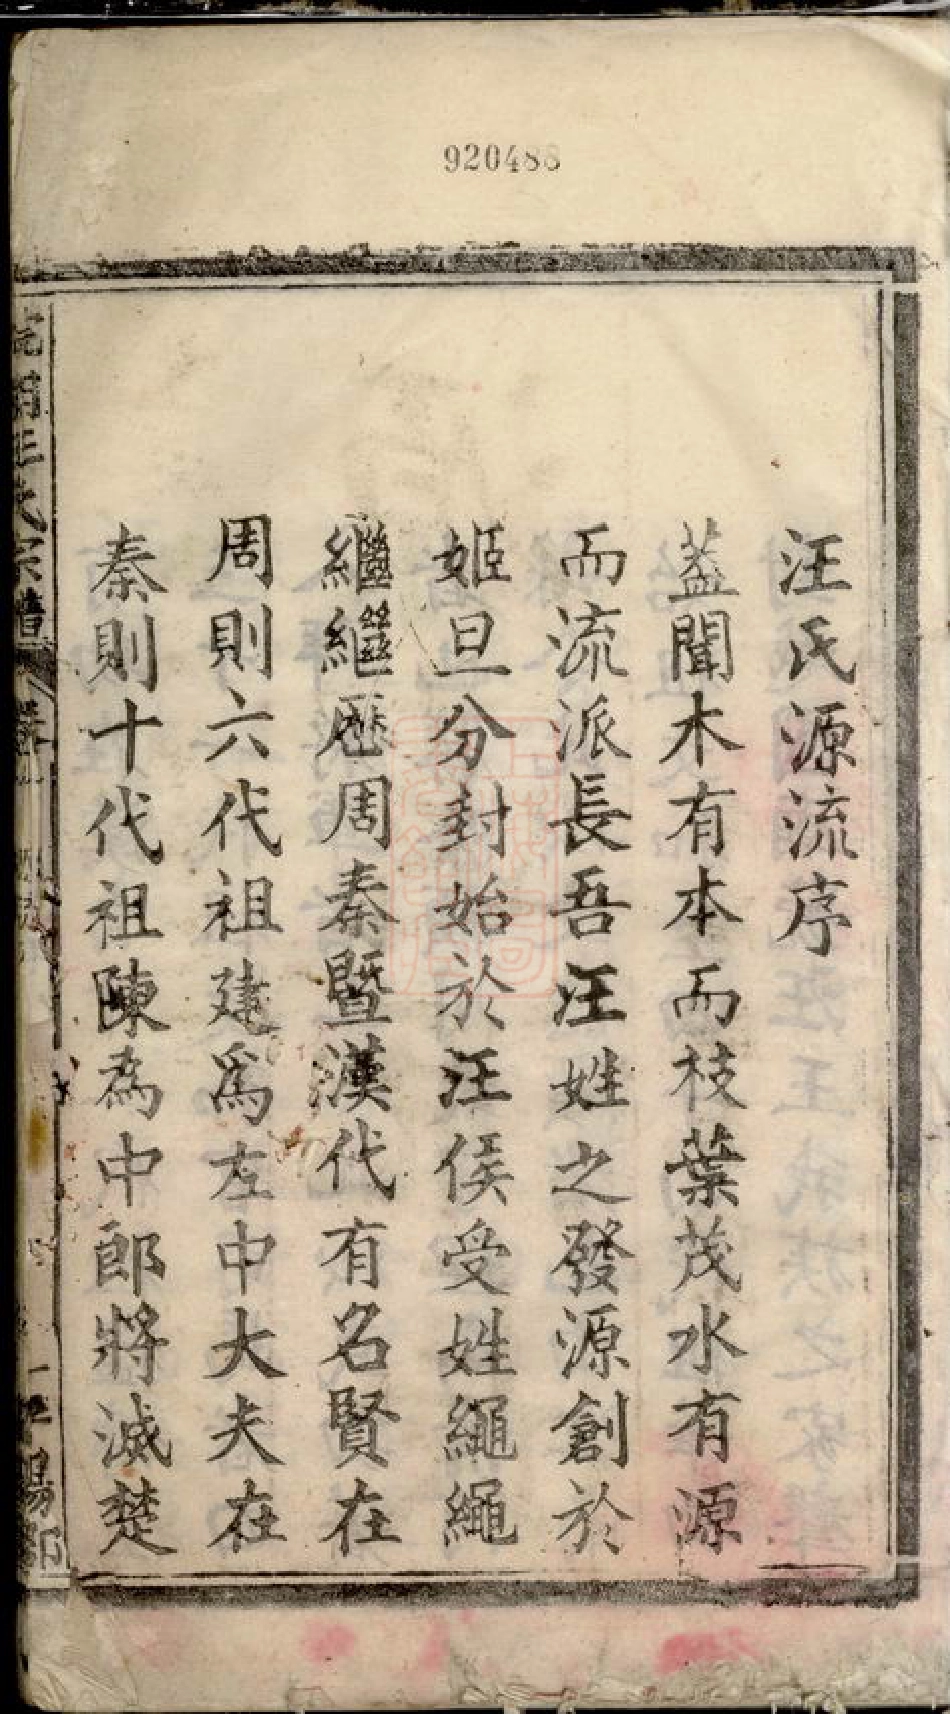 920488
汪氏源流序
蓋聞木有本而枝葉茂水有源
而流派長吾汪姓之發源創於
姬旦分封始於汪侯受姓繩繩
繼繼歷周秦暨漢代有名賢在
周則六代祖建爲左中大夫在
秦則十代祖陳為中郎將滅楚
氏宗譜